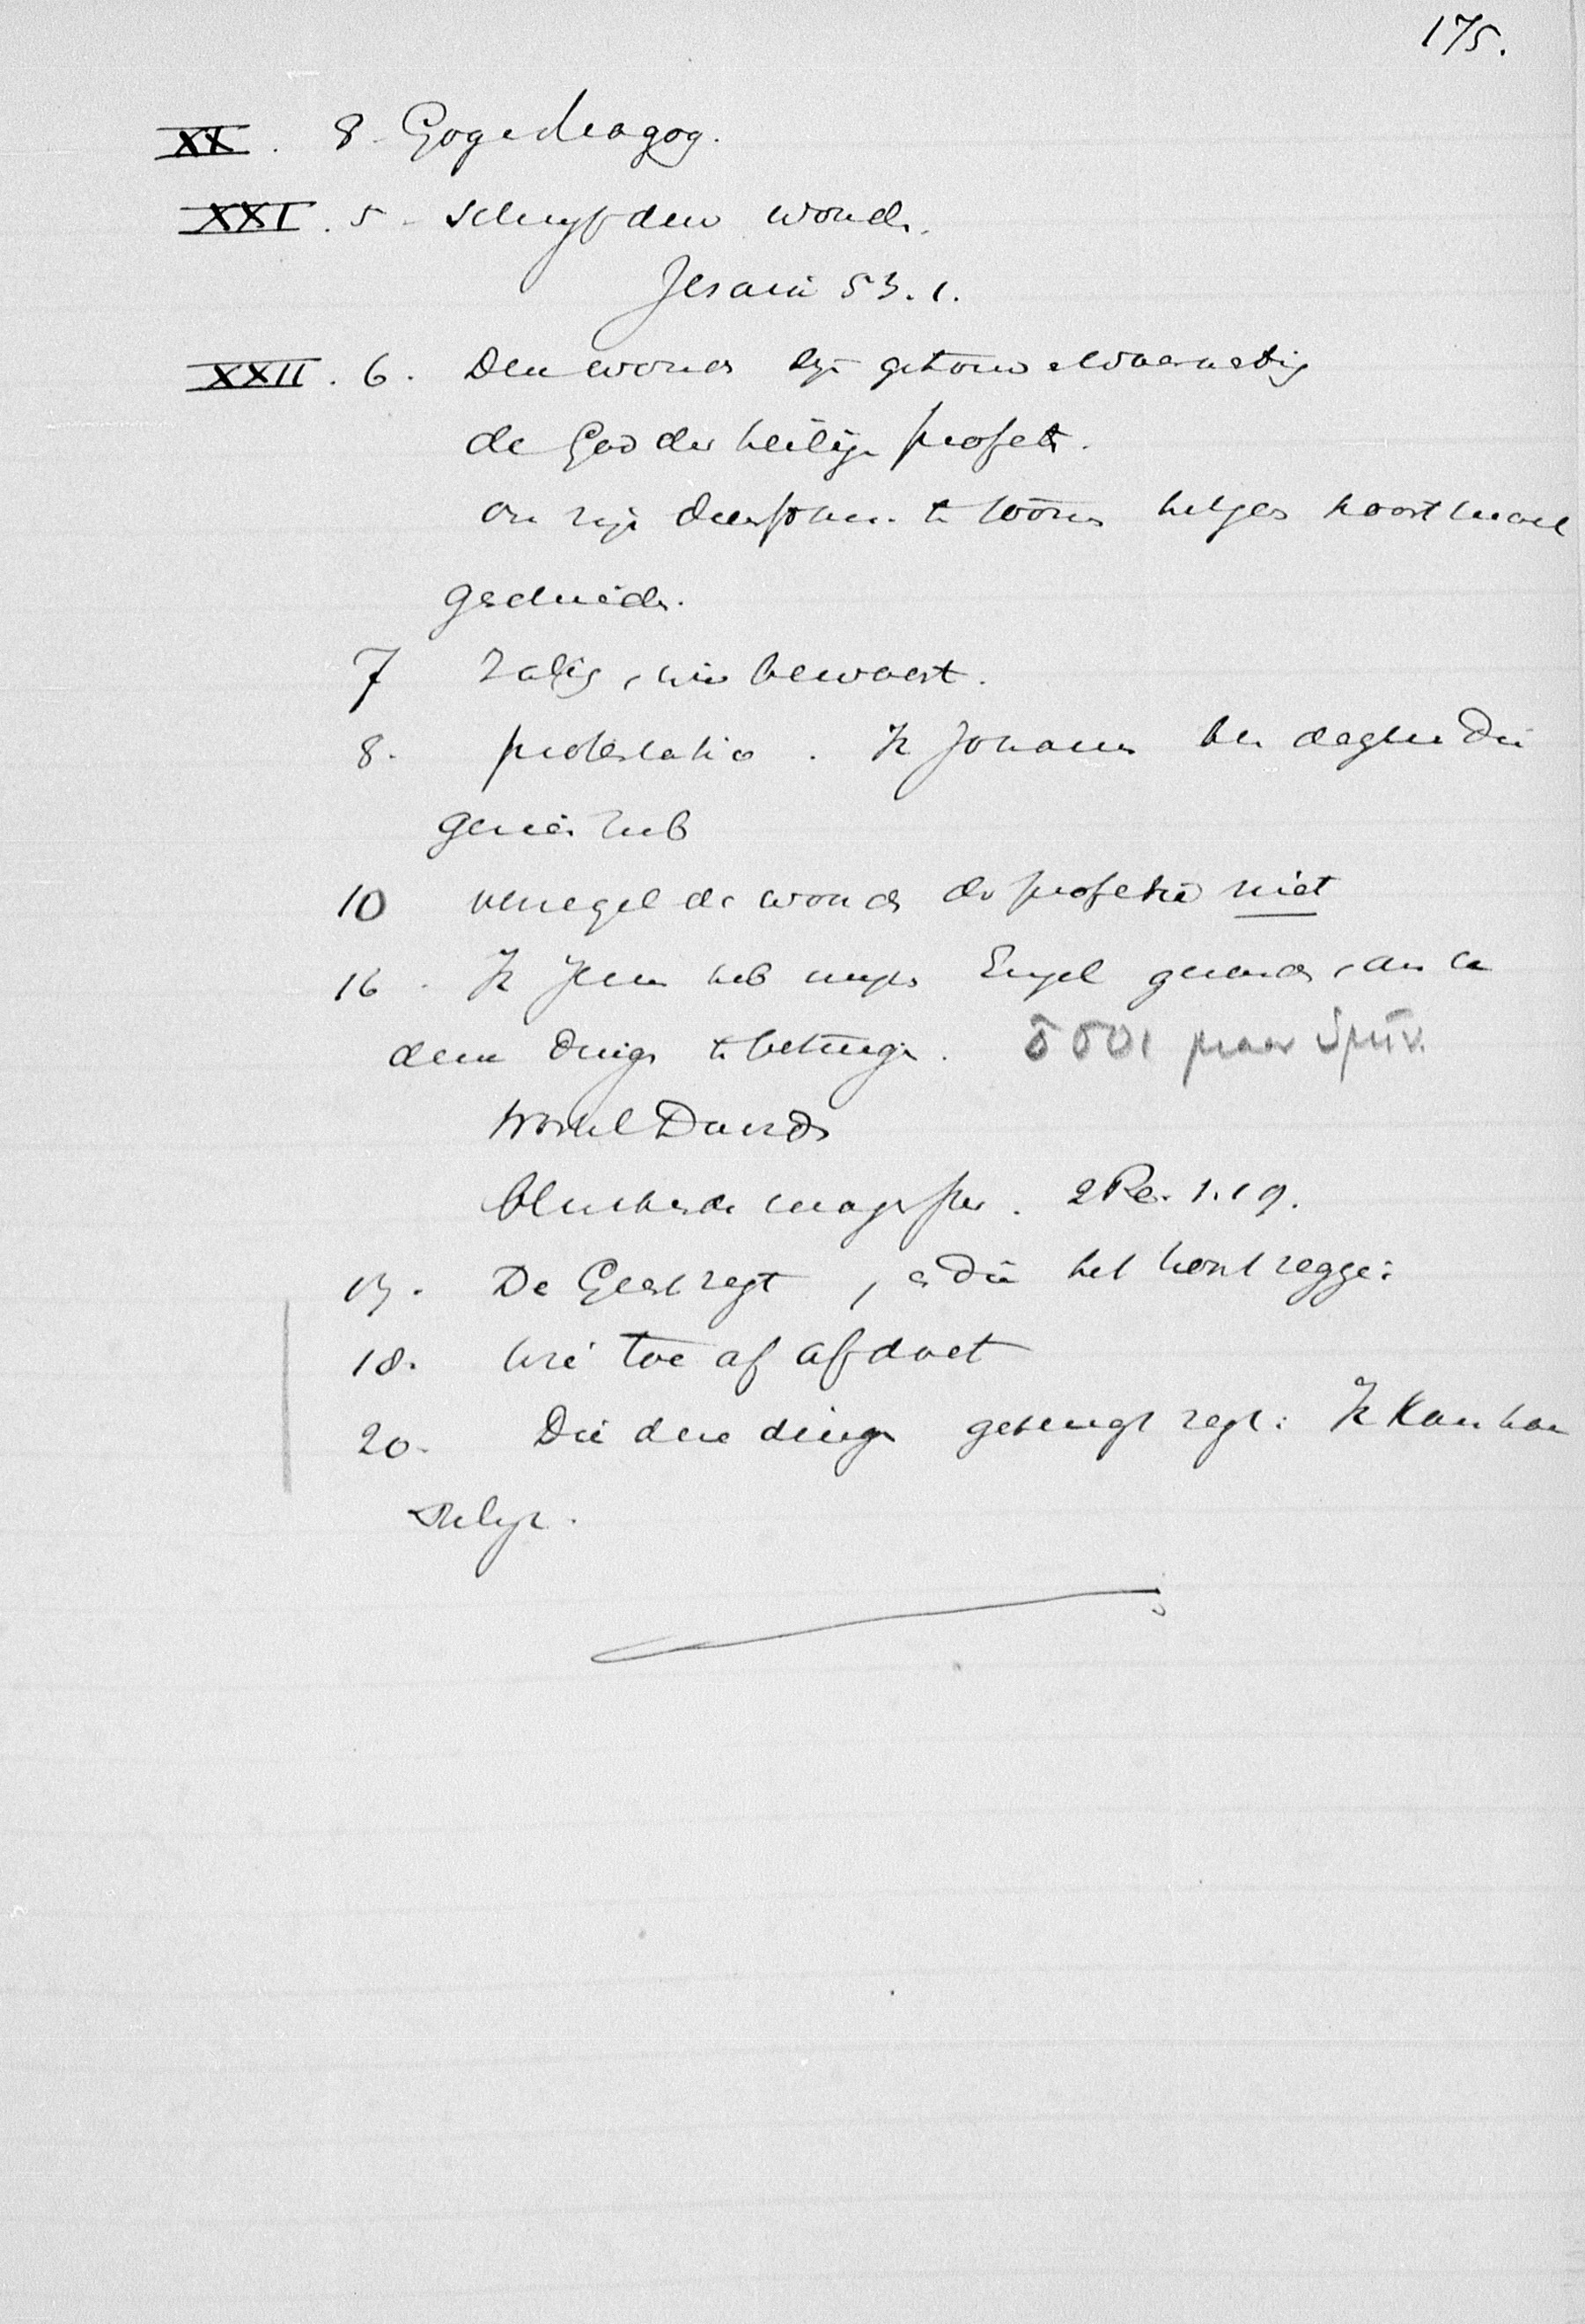 175.
XX. 8. Gog e Magog.
XXI. 5. Schryf deze woorden.
Jesaia 53.1.
XXII. 6. Deze woorden zyn getrouw e waarachtig
de God der heilige profeten.
om zijn dienstknn. te toonen hetgeen haast moet
geschieden.
7 Zalig, wie bewaart.
8. protestatio. Ik Johannes ben degene die
gezien heb
10 verzegel de woorden der profetie niet
16. Ik Jezus heb mijn Engel gezonden, om u
deze dingen te betuigen.
Wortel Davids
blinkende morgenster. 2 Pe. 1.19.
17. De Geest zegt, en die het hoort zegge:
18. Wie toe of afdoet
20. Die deze dingen getuigt zegt: Ik kom haa
stelyk.